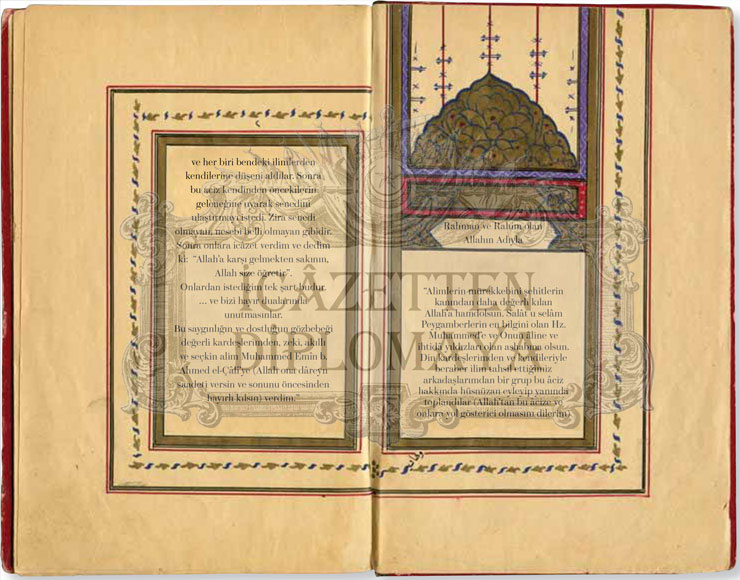 Rahman ve Rahim olan
Allahın Adıyla
“Alimlerin mürekkebini şehitlerin
kanından daha değerli kılan
Allah'a hamdolsun. Salât u selâm
Peygamberlerin en bilgini olan Hz.
Muhammed'e ve Onun âline ve
ihtida yıldızları olan ashabına olsun.
Din kardeşlerimden ve kendileriyle
beraber ilim tahsil ettiğimiz
arkadaşlarımdan bir grup bu âciz
hakkında hüsnüzan eyleyip yanında
toplandılar (Allah'tan bu âcize ve
onlara yol gösterici olmasını dilerim)
ve her biri bendeki ilimlerden
kendilerine düşeni aldılar. Sonra
bu âciz kendinden öncekilerin
geleneğine uyarak senedini
ulaştırmayı istedi. Zira senedi
olmayan, nesebi belli olmayan gibidir.
Sonra onlara icâzet verdim ve dedim
ki: “Allah'a karşı gelmekten sakının,
Allah size öğretir”.
Onlardan istediğim tek şart budur.
... ve bizi hayır dualarında
unutmasınlar.
Bu saygınlığın ve dostluğun gözbebeği
değerli kardeşlerimden, zeki, akıllı
ve seçkin alim Muhammed Emin b.
Ahmed el-Çâdî'ye (Allah ona dâreyn
saadeti versin ve sonunu öncesinden
hayırlı kılsın) verdim.”
İCÂZETTEN
DİPLOMAYA